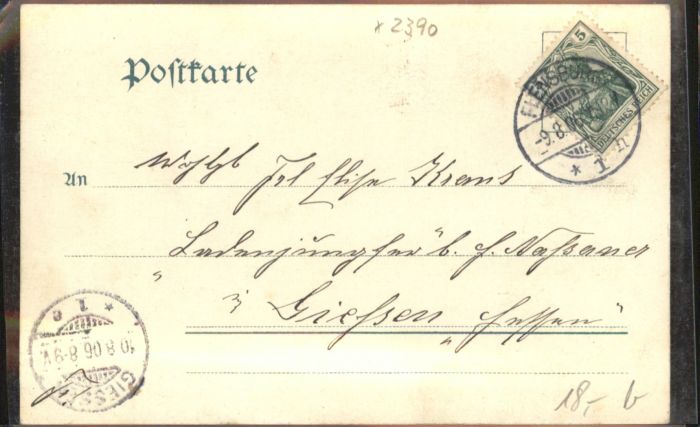 * 2390
Postkarte
5
DEUTSCHES REICH
FLENSBURG
-9.8.06
* 1 n
An Wohlgb Frl Elise Kraus
"Ladenjungfer" b. H. Nassauer
in Giessen "Hessen"
* 1 e
10.8.06.8-9V.
GIESSEN
18,- b